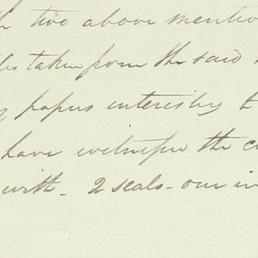 two above mentio
taken from the said
papers interesting t
have witness the c
with - 2 seals - our in